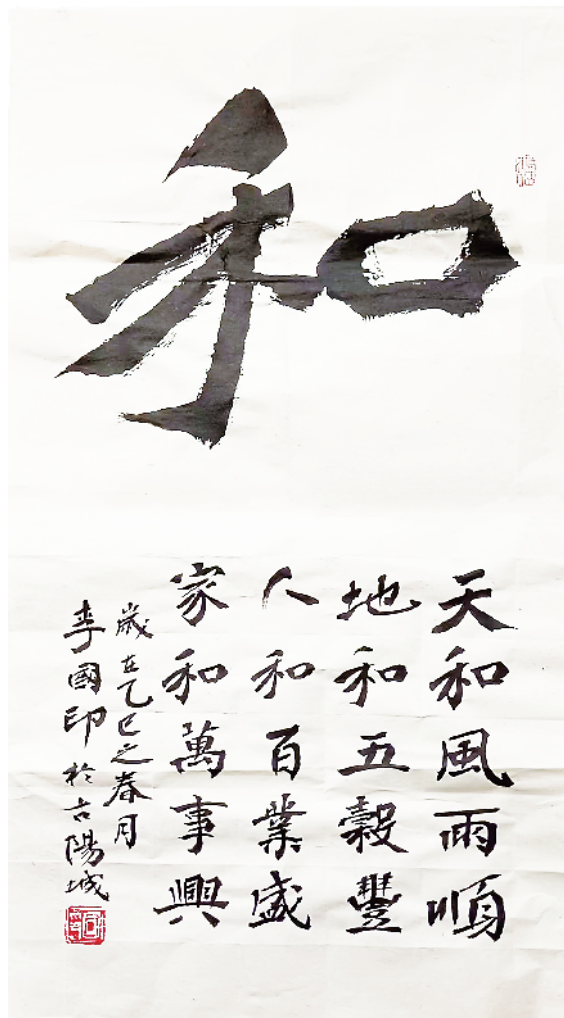 和
天和風雨順
地和五穀豐
人和百業盛
家和萬事興
歲在乙巳之春月
李國印於古陽城